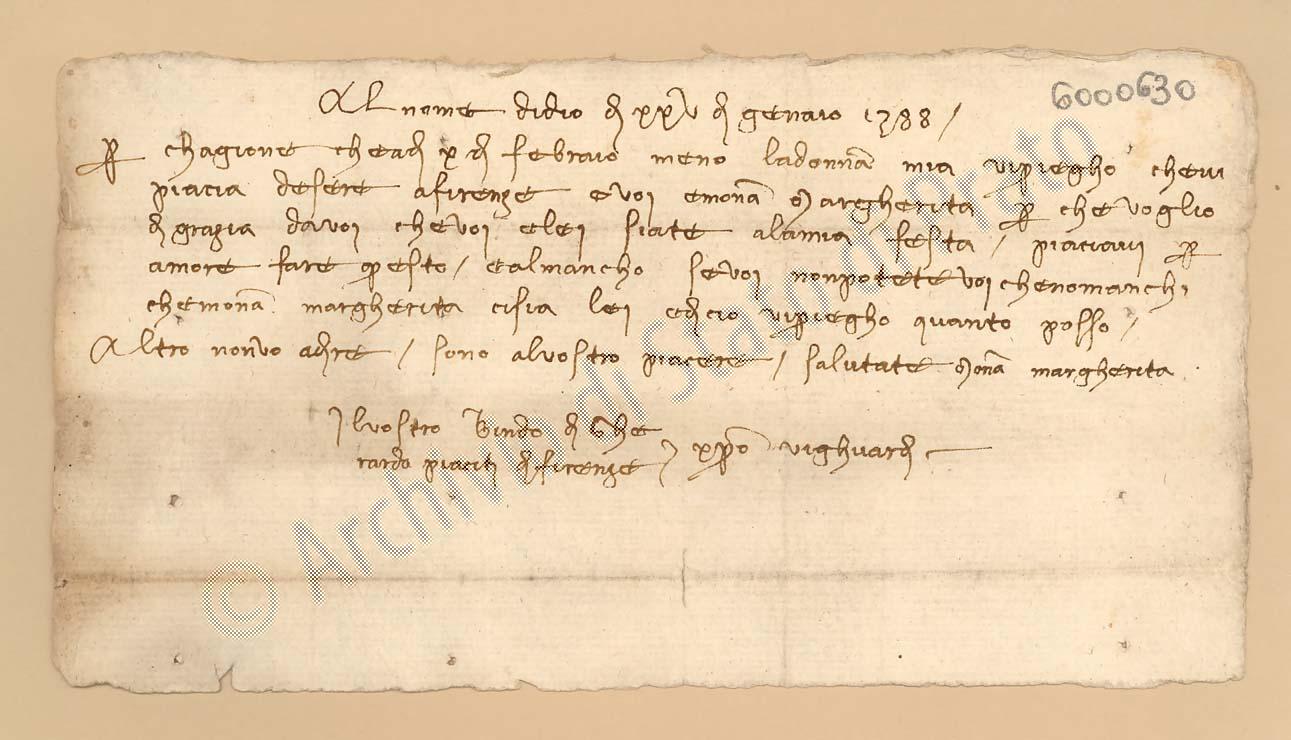 6000630
Al nome didio dì xxv di gennaio 1388 /
Per chagione che adì x di febraio meno ladonna mia vi priegho chevi
piacia desere afirenze e voi e mona Margherita per che voglio
di grazia davoi chevoi elei siate alamia festa / piaciavi per
amore fare questo / e almancho se voi nonpotete voi chenomanchi
chemona margherita cisia lei e dicio vi priegho quanto posso /
Altro nonvo adire / sono alvostro piacere / salutate Mona margherita
Ilvostro Bindo di Ghe
rardo piaciti difirenze / xpo vi ghuardi
© Archivio di Stato di Prato